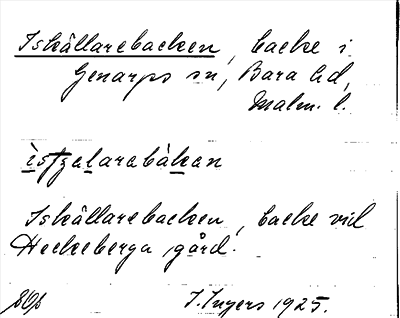 Iskällarebacken, backe i
Genarps sn, Bara hd,
Malm. l.
Iskällarebacken, backe vid
Heckeberga gård.
I. Ingers 1925.